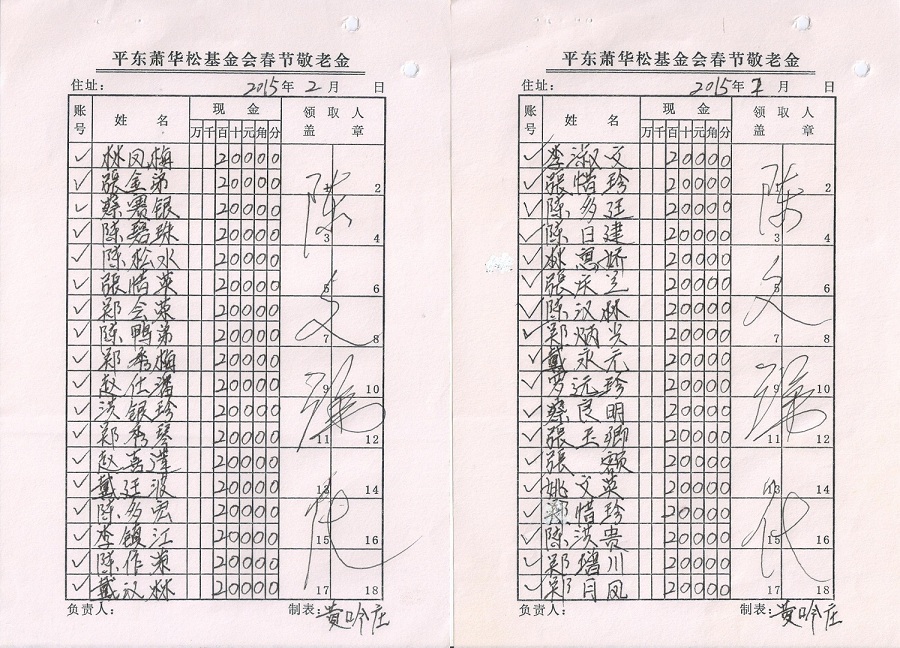 平东萧华松基金会春节敬老金
住址： 2015年 2 月 日
账号 姓 名 现 金 领 取 人 盖 章
万 千 百 十 元 角 分
✓ 林凤梅 20000
✓ 張金弟 20000 2
✓ 蔡 银 20000
✓ 陈碧珠 20000 3 4
✓ 陈松水 20000
✓ 張惜英 20000 5 6
✓ 郑会荣 20000
✓ 陈鸭弟 20000 7 8
✓ 郑秀梅 20000
✓ 赵仕潘 20000 9 10
✓ 洪银珍 20000
✓ 郑秀琴 20000 11 12
✓ 赵喜萍 20000
✓ 戴廷波 20000 13 14
✓ 陈多宏 20000
✓ 李镇江 20000 15 16
✓ 陈作英 20000
✓ 戴汉林 20000 17 18
陈文瑞代
负责人： 制表：黄吟庄
平东萧华松基金会春节敬老金
住址： 2015年 2 月 日
账号 姓 名 现 金 领 取 人 盖 章
万 千 百 十 元 角 分
✓ 李淑文 20000
✓ 張惜珍 20000 2
✓ 陈多廷 20000
✓ 陈日建 20000 3 4
✓ 林恩娇 20000
✓ 張庆兰 20000 6
✓ 陈汉林 20000
✓ 郑炳光 20000 7 8
✓ 戴永元 20000
✓ 罗远珍 20000 9 10
✓ 蔡良明 20000
✓ 張玉卿 20000 11 12
✓ 張 额 20000
✓ 姚文英 20000 13 14
✓ 郑惜珍 20000
✓ 陈洪贵 20000 15 16
✓ 郑瑞川 20000
✓ 郑月凤 20000 17 18
陈文瑞代
负责人： 制表：黄吟庄